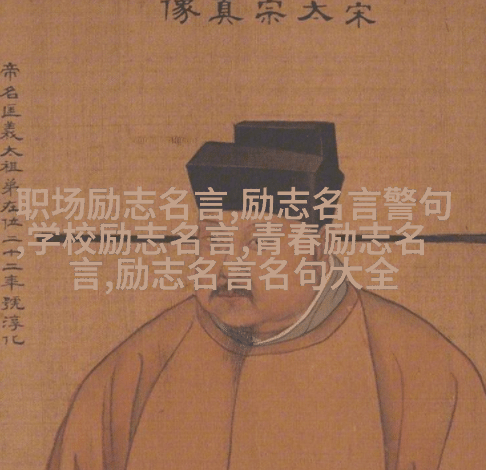 宋太宗真像
帝名匡義太祖弟在位二十二年號淳化
职场励志名言,励志名言警句
,学校励志名言,青春励志名
言,励志名言名句大全